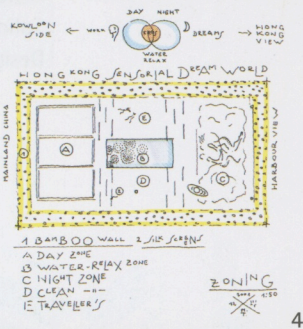 DAY NIGHT
KOWLOON SIDE ← WORK
DREAMS → HONG KONG VIEW
WATER RELAX
HONG KONG SENSORIAL DREAM WORLD
MAINLAND CHINA
HARBOUR VIEW
A
B
C
D
E
E
1 BAMBOO WALL 2 SILK SCREENS
A DAY ZONE
B WATER-RELAX ZONE
C NIGHT ZONE
D CLEAN -"-
E TRAVELLER'S
ZONING
1:50
4